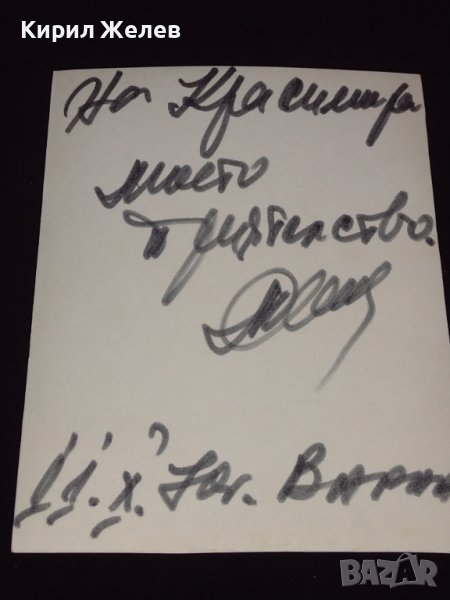 Кирил Желев
На Красимира
моето
приятелство.
11.X. г. Варна
BAZAR